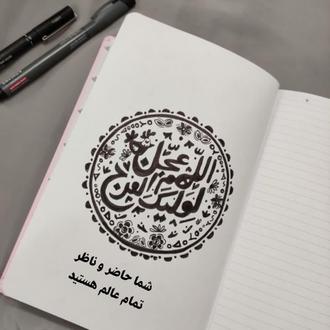 اللهم عجل
لولیک الفرج
شما حاضر و ناظر
تمام عالم هستید